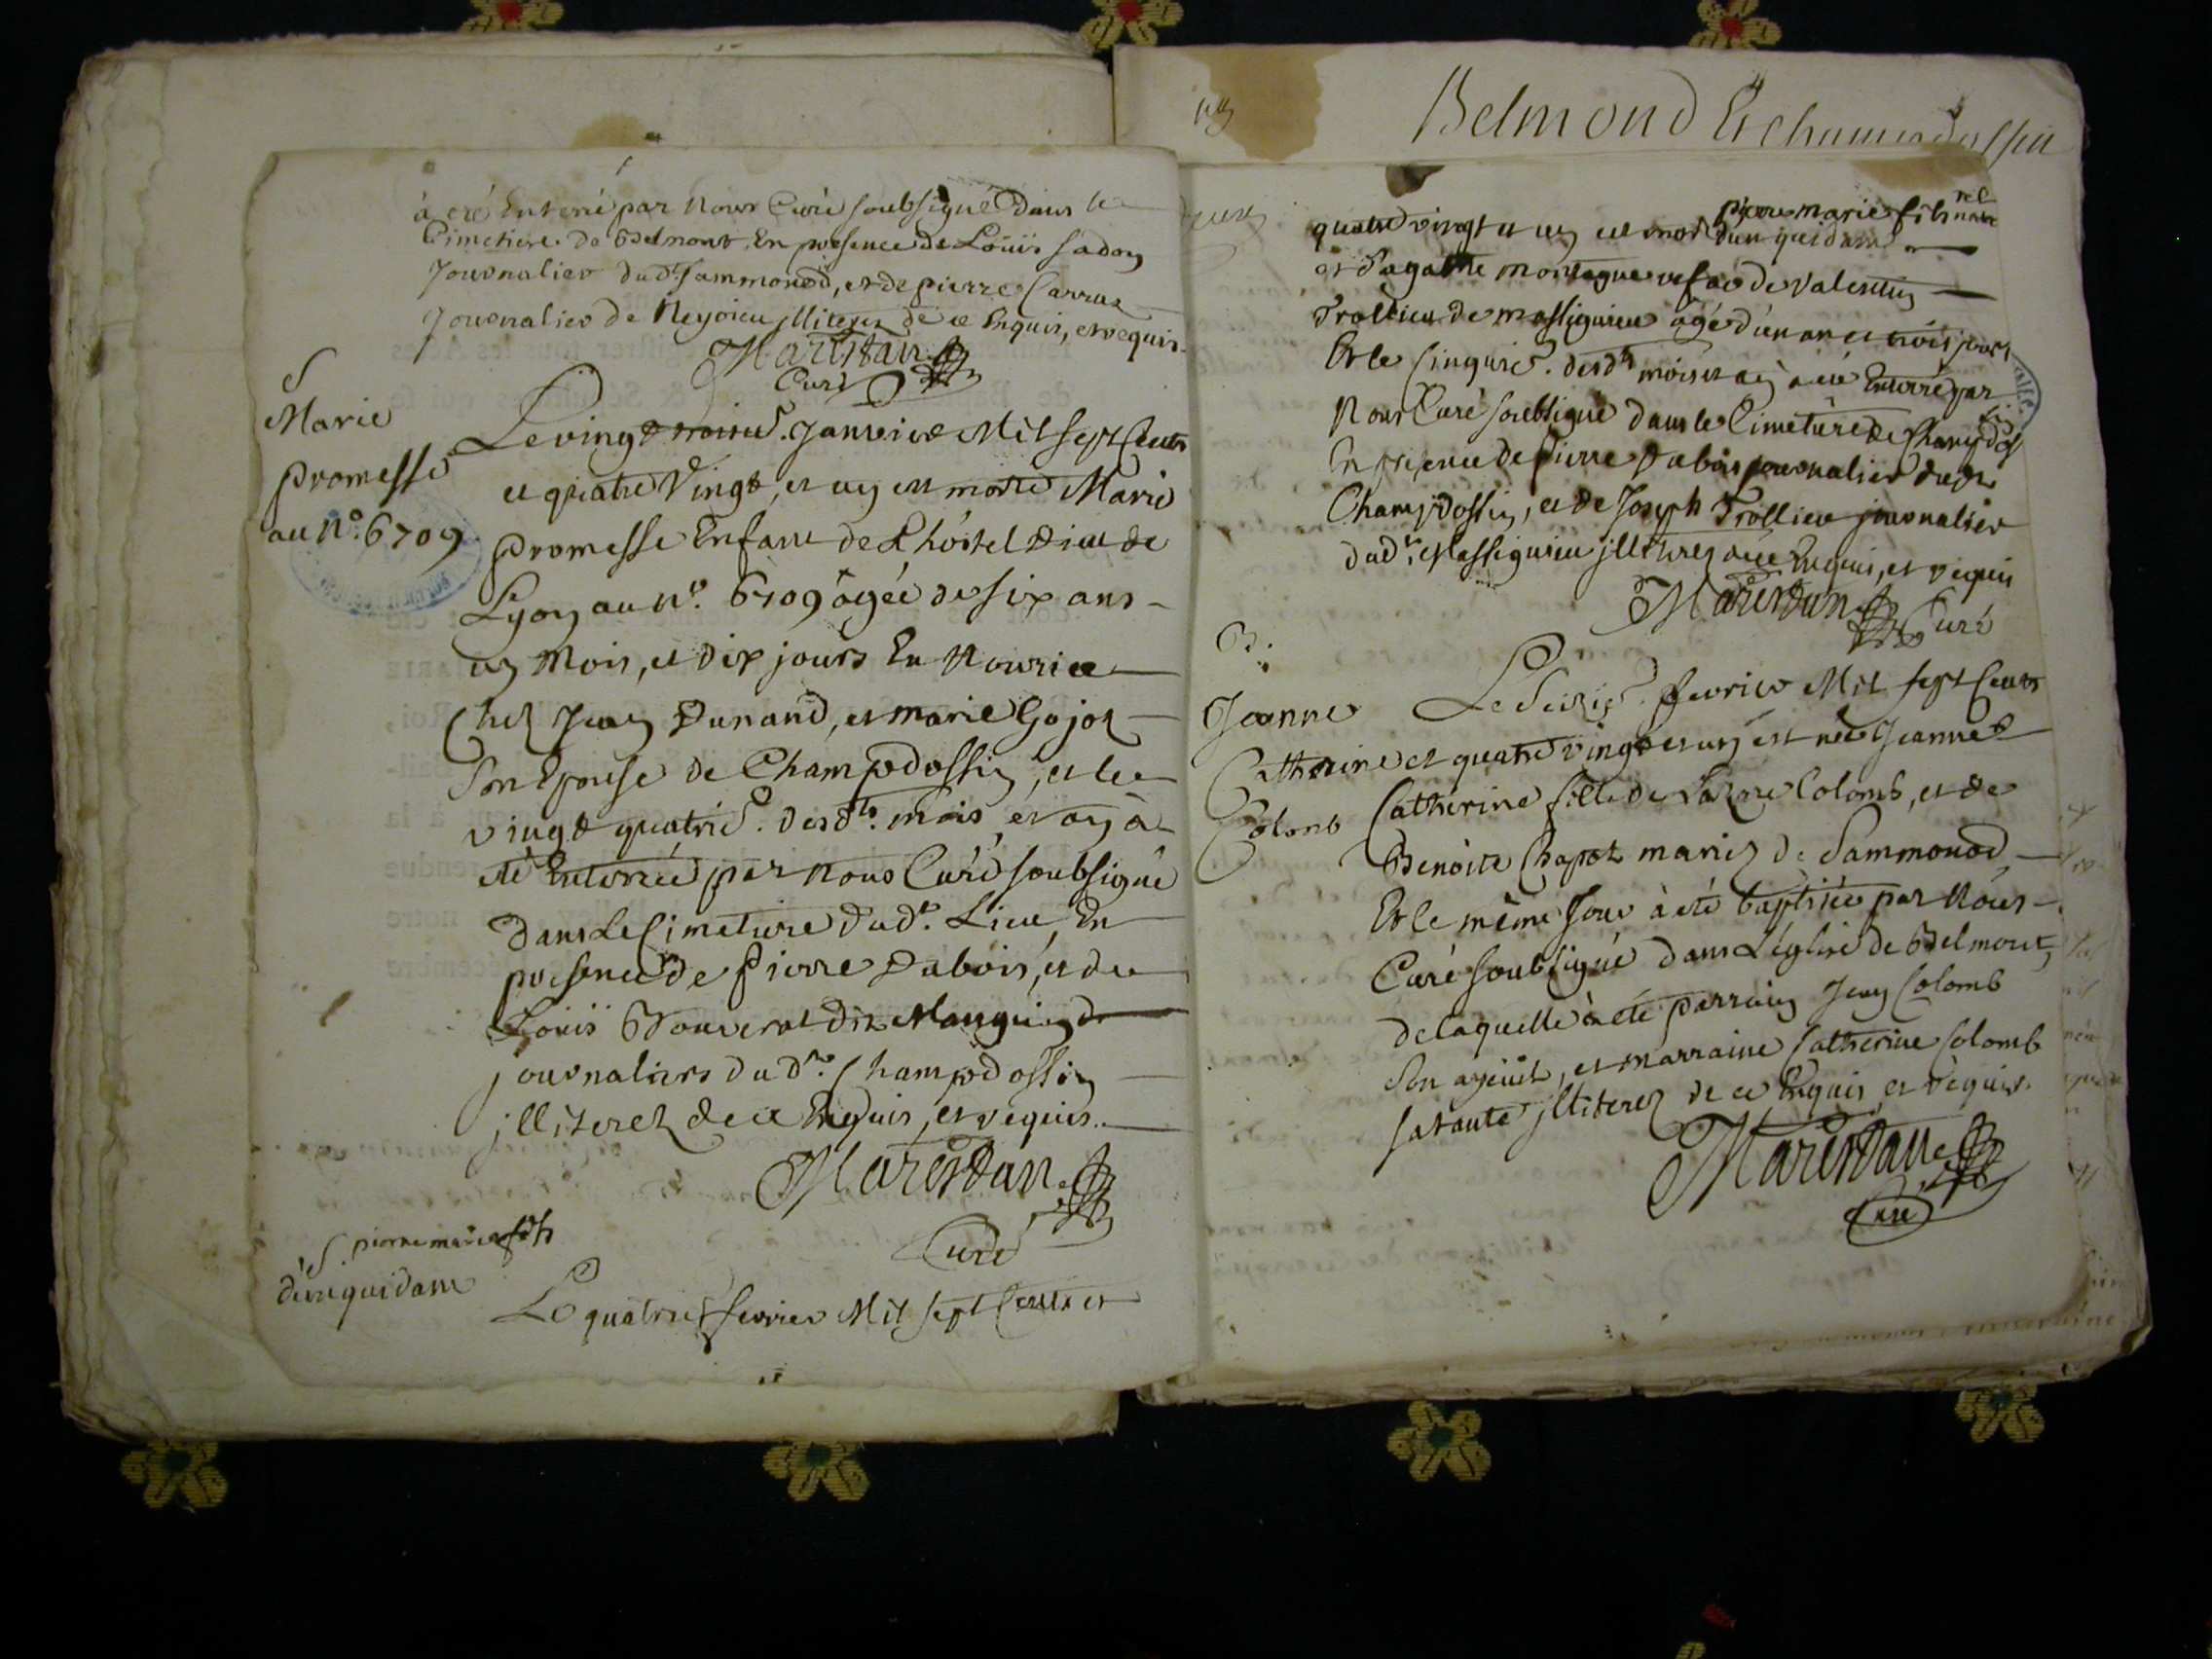 à eté Enterré par Nous Curé soubsigné Dans le
Cimetiere de Belmont En presence de Loüis Sadon
Journalier dud.t Sammonod, et de pierre Carraz
Journalier de Neyoieu jlliterez de ce Enquis, et requis
Marestan
Curé
S
Marie
promesse
au N.o 6709
Le vingt troisie. Janvier Mil sept Cents
et quatre Vingt, et un est morte Marie
promesse Enfant de Lhôstel Dieu de
Lyon au N.o 6709 âgée de six ans
un Mois, et dix jours En Nourice
Chez Jean Dunand, et marie Gojoz
Son Epouse de Champdossin, et le
vingt quatrie. desd.ts mois, et an à
été Enterrée par Nous Curé soubsigné
Dans Le Cimetiere Dud.t Lieu, En
presence de Pierre Dubois, et de
Loüis Bouverat dit Manguin
journaliers Dud.t Champdossin
jlliterez de ce Enquis, et requis.
Marestan
Curé
S pierre marie fils
d'un quidam
Le quatrie. fevrier Mil sept Cents et
Belmond Et
quatre vingt et un est mort pierre marie fils nel
d'un quidam
et d'agathe montague vefve de Valentin
Trollieu de massignieu agé d'un an et trois jours
Et le Cinquie. desd.ts mois et an à eté Enterré par
Nous Curé soubsigné dans le Cimetiere de Champdos
En presence de Pierre Dubois journalier dud.t
Champdossin, et de Joseph Trollieu journalier
dud.t Massignieu jlliterez de ce Enquis, et requis
Marestan Curé
B.
Jeanne
Catherine
Colomb
Le Seizie. fevrier Mil sept Cents
et quatre vingt et un est née Jeanne
Catherine fille de Lazare Colomb, et de
Benoite Chapot mariez de Sammonod,
Et le même Jour à eté baptisée par Nous
Curé soubsigné Dans L'église de Belmont,
de laquelle à eté parrain Jean Colomb
Son ayeul, et marraine Catherine Colomb
sa tante jlliterez de ce Enquis et requis.
Marestan
Curé